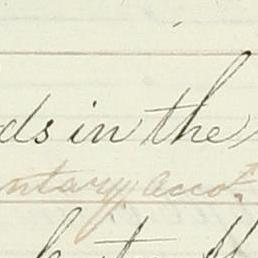 ds in the
ntary acco^t.